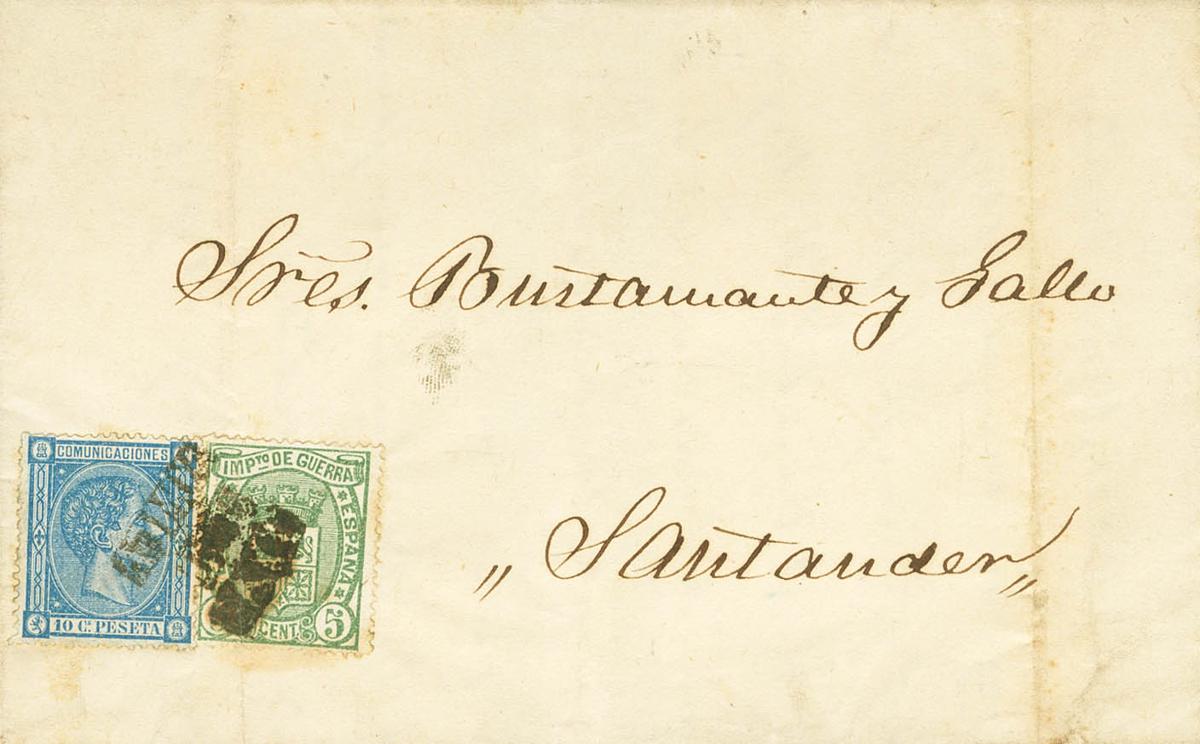 Sres. Bustamante y Gallo
„ Santander „
COMUNICACIONES
10 Cs. PESETA
IMPTO DE GUERRA
ESPAÑA
5
CENT.
5